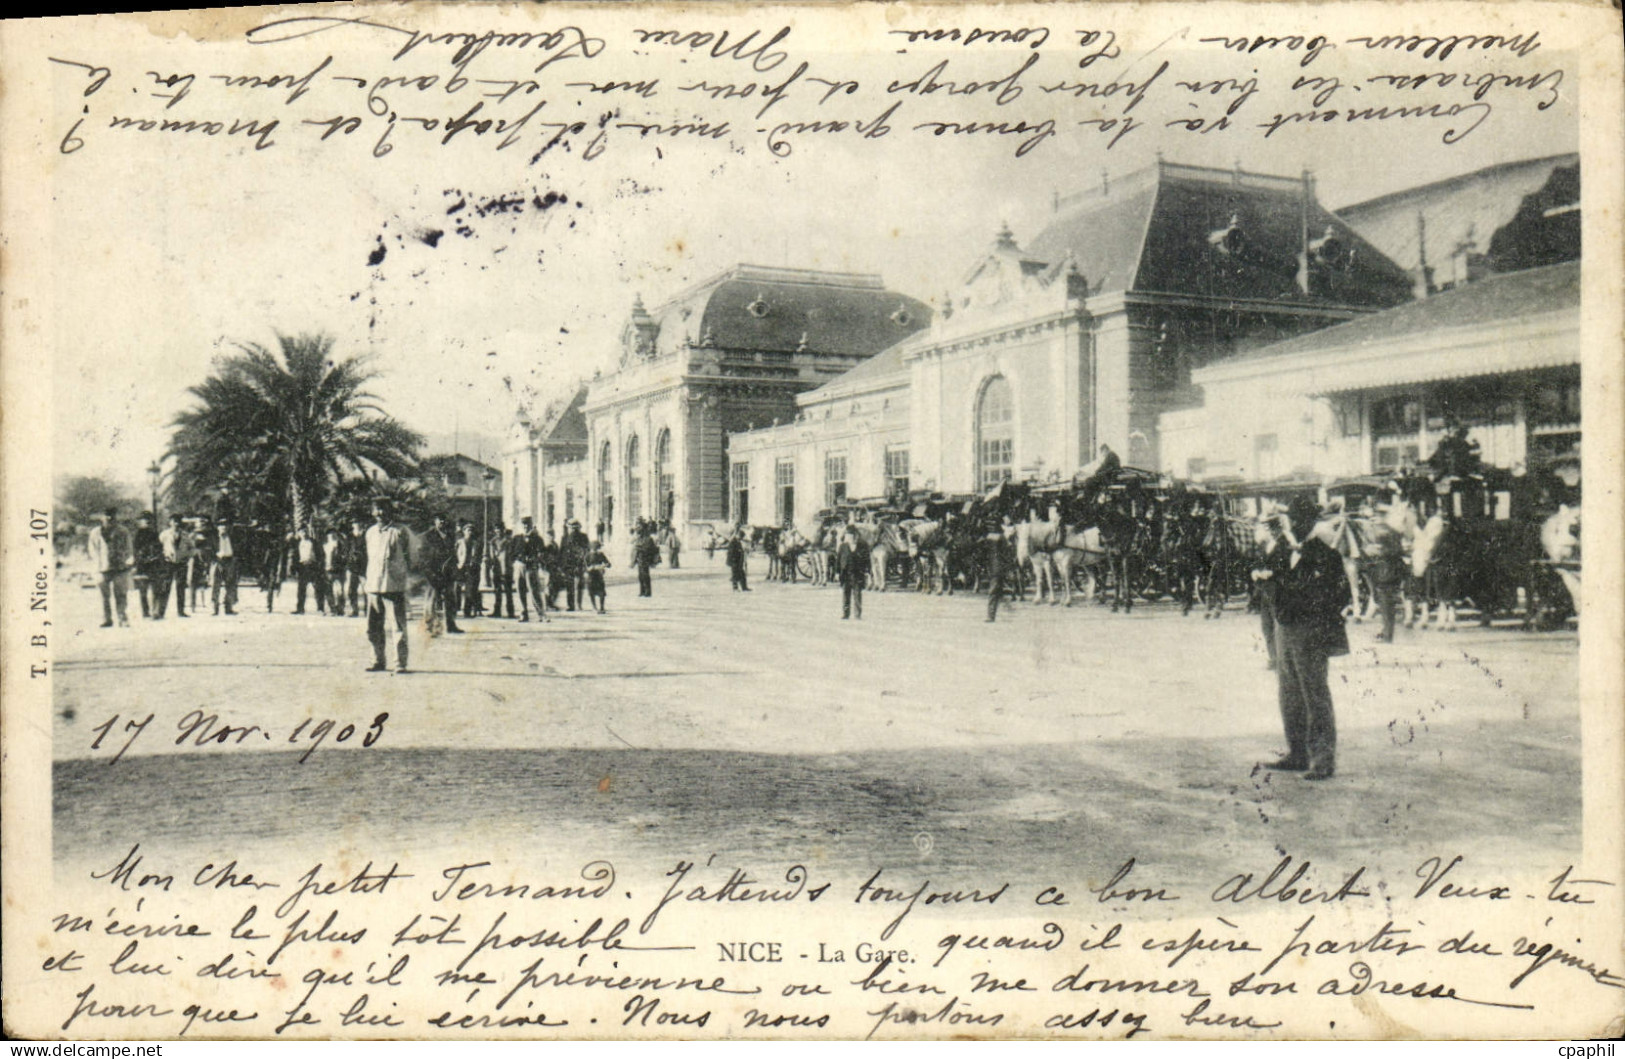 17 Nov. 1903
Mon cher petit Fernand. J'attends toujours ce bon Albert. Veux-tu
m'écrire le plus tôt possible quand il espère partir du régiment
NICE - La Gare.
et lui dire qu'il me prévienne ou bien me donner son adresse
pour que je lui écrive. Nous nous portons assez bien.
Comment va ta bonne grand-mère? et papa? et maman?
Embrasse-les bien pour Georges et pour moi et garde pour toi le
meilleur baiser
Ta cousine Marie Lambert
T. B, Nice. - 107
cpaphil